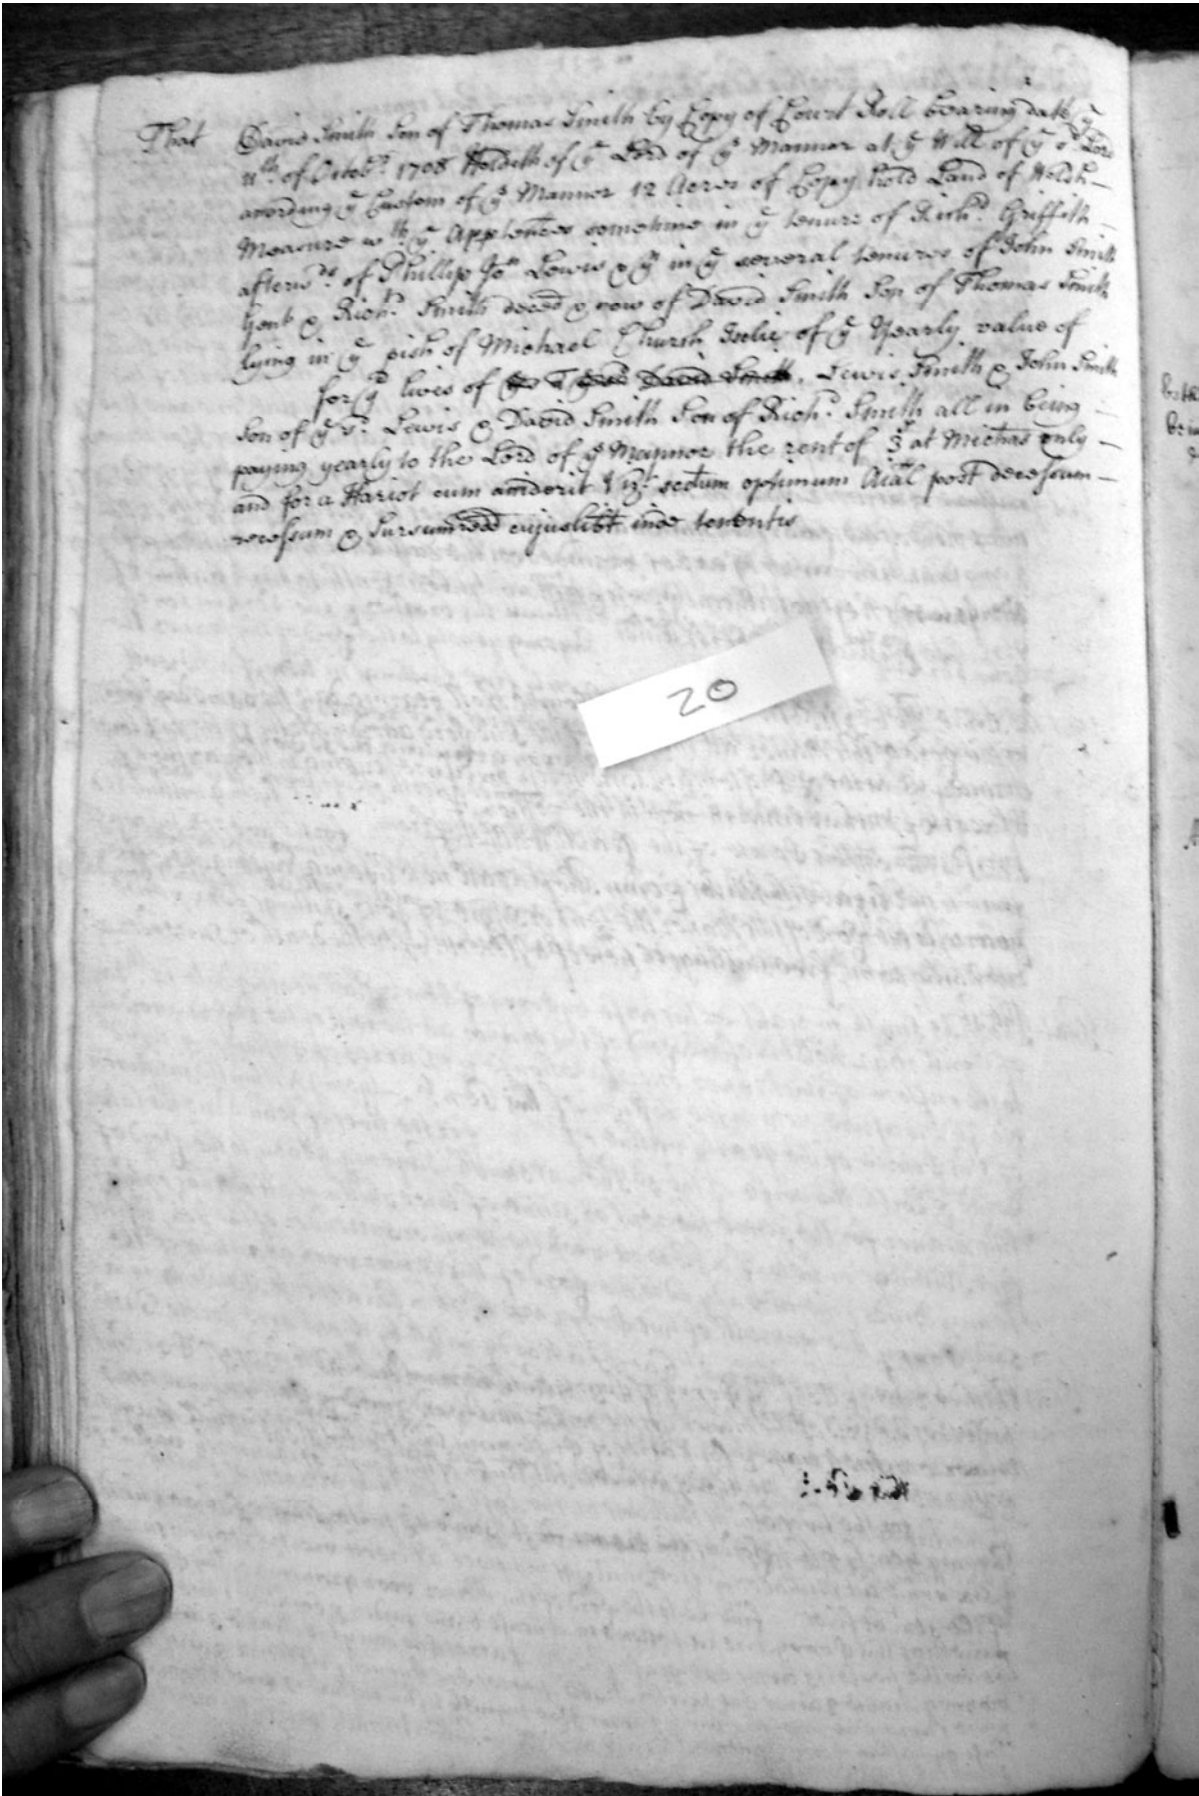 That David Smith Son of Thomas Smith by Copy of Court Roll bearing date yͤ
11th. of Octobʳ. 1708 Holdeth of yͤ Lord of yͤ Mannor at yͤ Will of yͤ sᵈ. Lord
acording yͤ Custom of yͤ Mannor 12 Acres of Copy hold Land of Welsh –
Measure wth yͤ Appteñces sometime in yͤ tenure of Richᵈ. Griffith –
afterwᵈˢ of Phillip Lewis & in yͤ several tenures of John Smith
Gent & Richᵈ. Smith deced & now of David Smith Son of Thomas Smith
lying in yͤ pish of Michael Church Eslie of yͤ Yearly value of
for yͤ lives of David Smith, Lewis Smith & John Smith
Son of yͤ sᵈ. Lewis & David Smith Son of Richᵈ. Smith all in being –
paying yearly to the Lord of yͤ Mannor the rent of 3ˢ at Michas only –
and for a Hariot cum acciderit optimum Aial post decessum –
recessum & Sursumredd cujuslibt inde tenentis
20